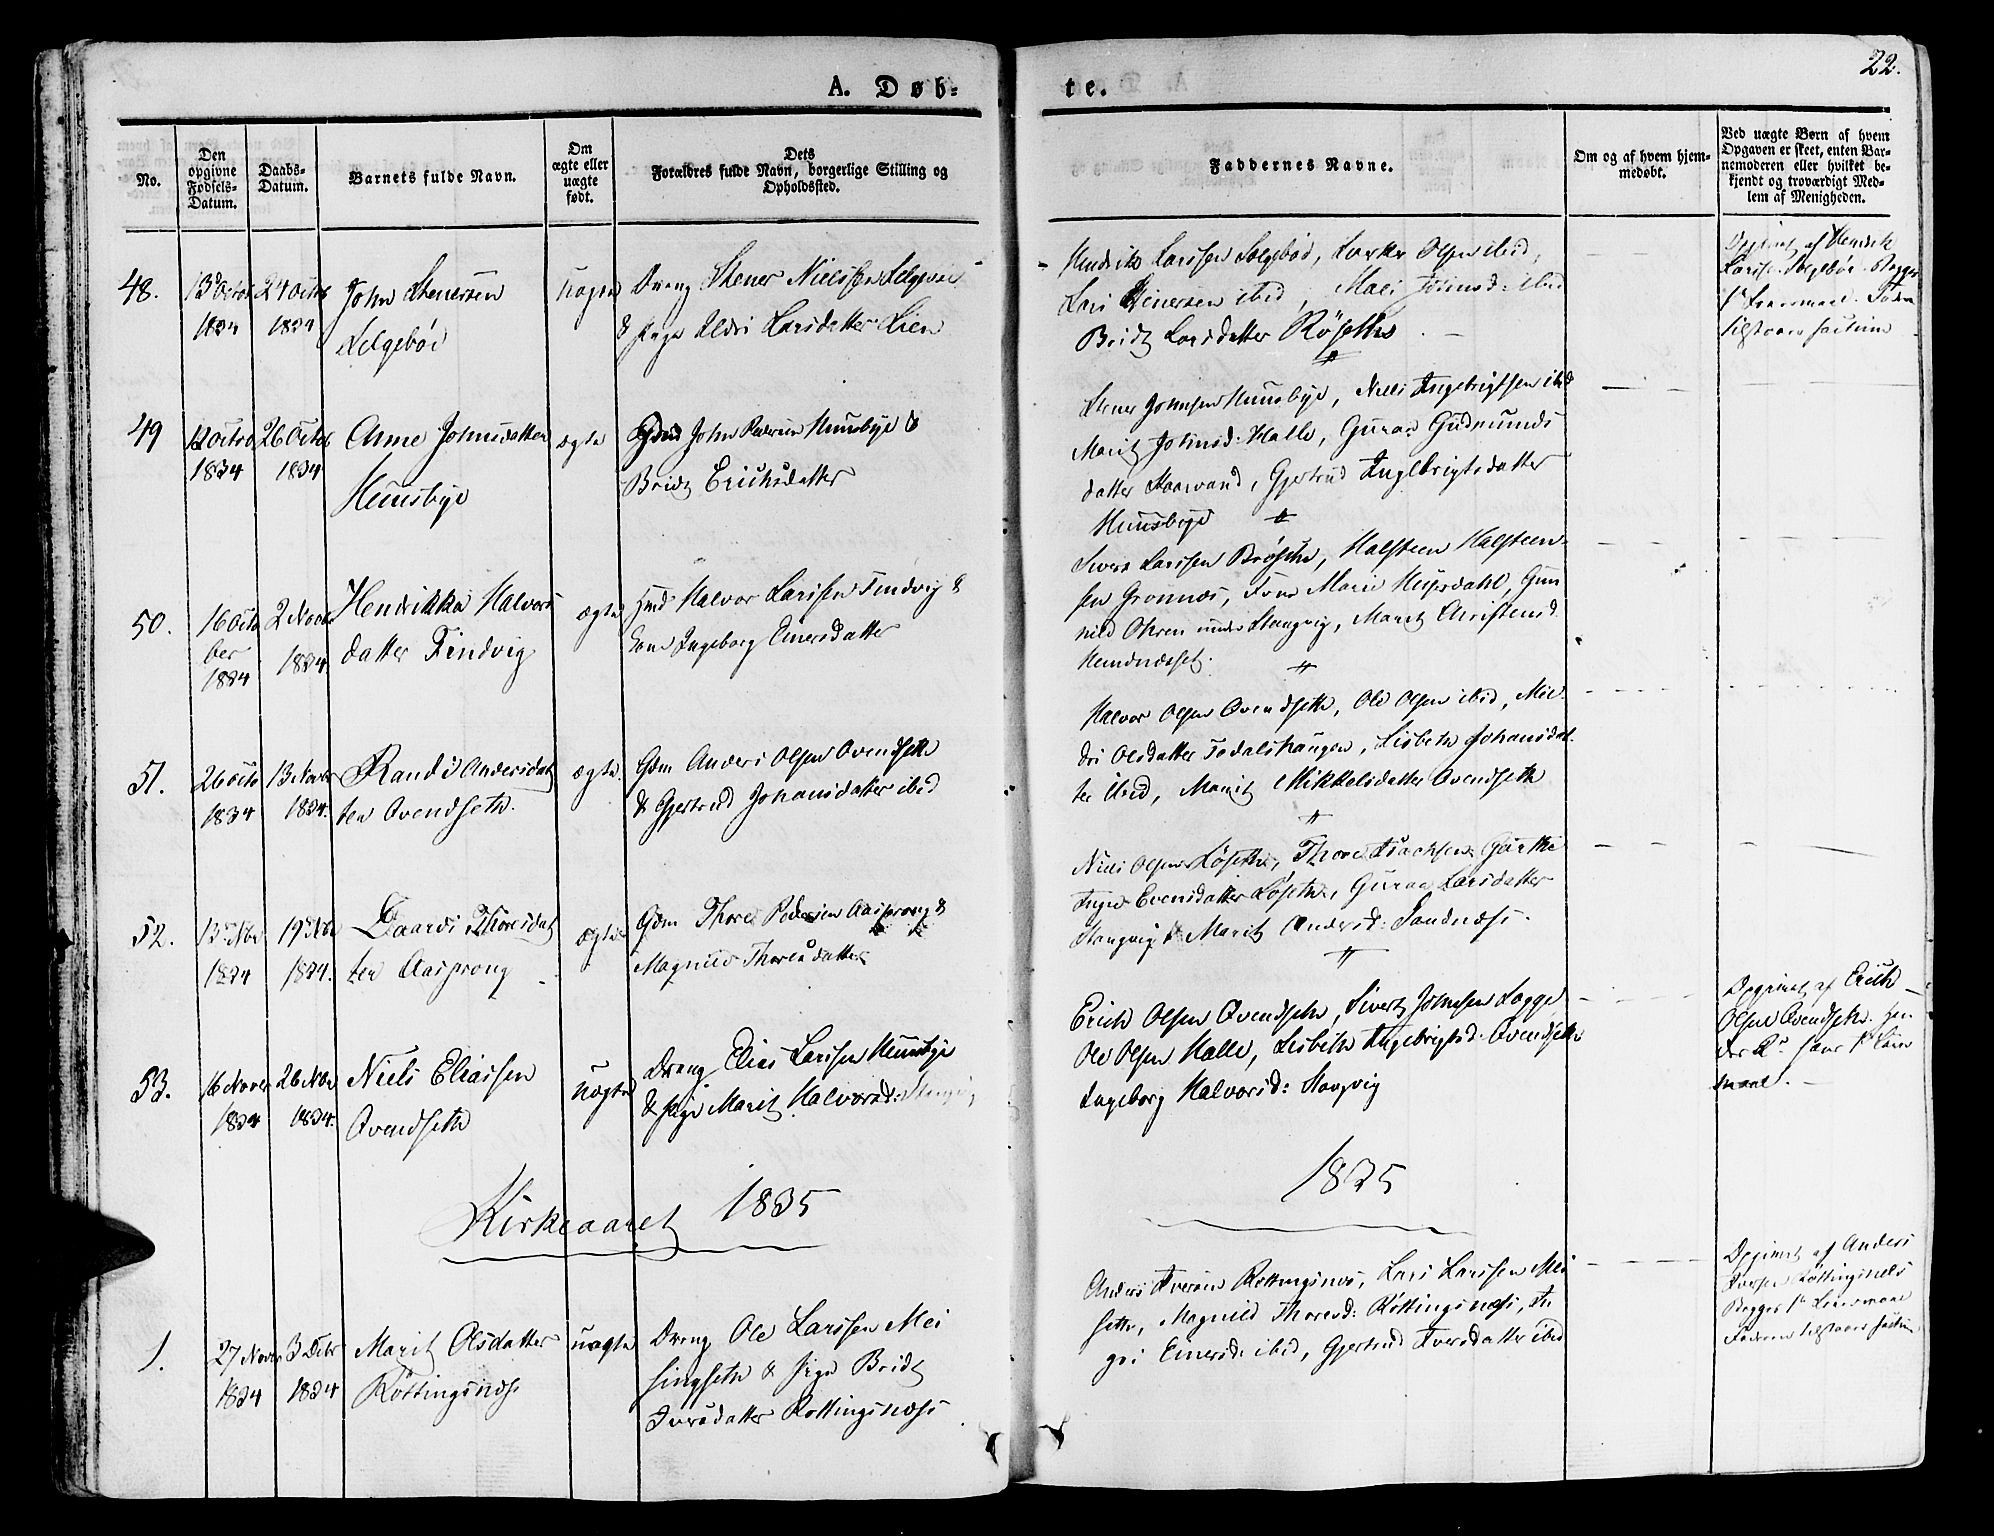 22.
A. Døb-
te.
No.
Den
opgivne
Fødsels-
Datum.
Daabs-
Datum.
Barnets fulde Navn.
Om
ægte eller
uægte
født.
Dets
Forældres fulde Navn, borgerlige Stilling og
Opholdssted.
Faddernes Navne.
Om og af hvem hjem-
medøbt.
Ved uægte Børn af hvem
Opgaven er skeet, enten Bar-
nemoderen eller hvilket be-
kjendt og troværdigt Med-
lem af Menigheden.
48.
13 Octob
1834
24 Octob
1834
John Stenersen
Selgebøe
uægte
Dreng Stener Nielssen Selgebøe
& Pige Ildri Larsdatter Lien
Hendrik Larssen Solgebøe, Olsen ibid,
Lars Stenersen ibid, Mali Johnsd: ibid
Bridt Larsdatter Røseths
af Hendrik
Larssen Solgebøe
49
12 Octob
1834
26 Octob
1834
Anne Johnsdatter
Huusbye
ægte
Gdmd John Pedersen Huusbye &
Bridt Erichsdatter
Stener Johnsen Huusbye, Niels Ingebrigtsen ibid
Marit Johnsd: Halle, Guraa Gudmunds
datter Kaarvand, Gjertrud Ingebrigtsdatter
Huusbye
50.
16 Octo
ber
1834
2 Novbr
1834.
Henrikka Halvors
datter Findvig
ægte
Halvor Larssen Findvig &
Kone Ingeborg Einersdatter
Sivert Larssen Brøske, Halsteen Halsteen-
sen Grønnæs, Marie Husrdahl, Gun
nild Øhren under Stangvig, Maret Christensd.
Hemdnæsset.
51.
26 Octo
1834
13 Novbr
1834.
Randi Andersdat
ter Ovendseth.
ægte
Gdm Anders Olsen Ovendseth
& Gjertrud Johansdatter ibid
Halvor Olsen Ovendseth, Ole Olsen ibid, Mil
dri Olsdatter Todalshaugen, Lisbeth Johansdat
ter ibid, Marit Mikkelsdatter Ovendseth
52.
13 Nbr
1834
19 Nbr
1834.
Baardi Thoresdat
ter Aasprong
ægte
Gdm Thore Pedersen Aasprong &
Magnild Thoresdatter
Niels Olsen Løseth, Thore Isachsen
Inger Evensdatter Løseth, Guraa Larsdatter
Stangvig & Marit Andersd: Sandnæss.
53.
16 Novbr
1834
26 Nbr
1834.
Niels Eliassen
Ovendseth
uægte
Dreng Elias Larssen Huusbye
& Pige Marit Halvorsd: Stangvig
Erich Olsen Ovendseth, Sivert Johnsen Bogge
Ole Olsen Halle, Lisbeth Ingebrigtsd: Ovendseth
Ingeborg Halvorsd: Stangvig
Opgivet af Erich
Olsen Ovendseth.
Kirkeaaret 1835
1835
1.
27 Novbr
1834
3 Debr
1834
Marit Olsdatter
Røttingsnæss
uægte
Dreng Ole Larssen Mei
singseth & Pige Bridt
Iversdatter Røttingsnæss
Anders Iversen Røttingsnæs, Lars Larssen Mei
seth, Magnild Thoresd: Røttingsnæss, In
geri Einersd: ibid, Gjertrud Iversdatter ibid
Opgivet af Anders
Iversen Røttingsnæs